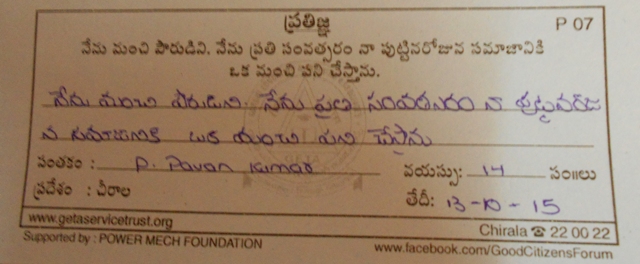 ప్రతిజ్ఞ
P 07
నేను మంచి పౌరుడిని. నేను ప్రతి సంవత్సరం నా పుట్టినరోజున సమాజానికి
ఒక మంచి పని చేస్తాను.
నేను మంచి పౌరుడిని. నేను ప్రతి సంవత్సరం నా పుట్టినరోజు
న సమాజానికి ఒక మంచి పని చేస్తాను
సంతకం : P. Pavan Kumar వయస్సు: 14 సం॥లు
ప్రదేశం : చీరాల తేదీ: 13-10-15
www.getaservicetrust.org Chirala ☎ 22 00 22
Supported by : POWER MECH FOUNDATION www.facebook.com/GoodCitizensForum